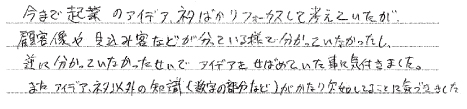 今まで起業のアイデア、ネタばかりフォーカスして考えていたが、
顧客像や見込み客などが分っている様で分かっていなかったし、
逆に分かっていなかったせいでアイデアをせばめていた事に気付きました。
またアイデア、ネタ以外の知識(数字の部分など)がかなり欠如してることに気づきました